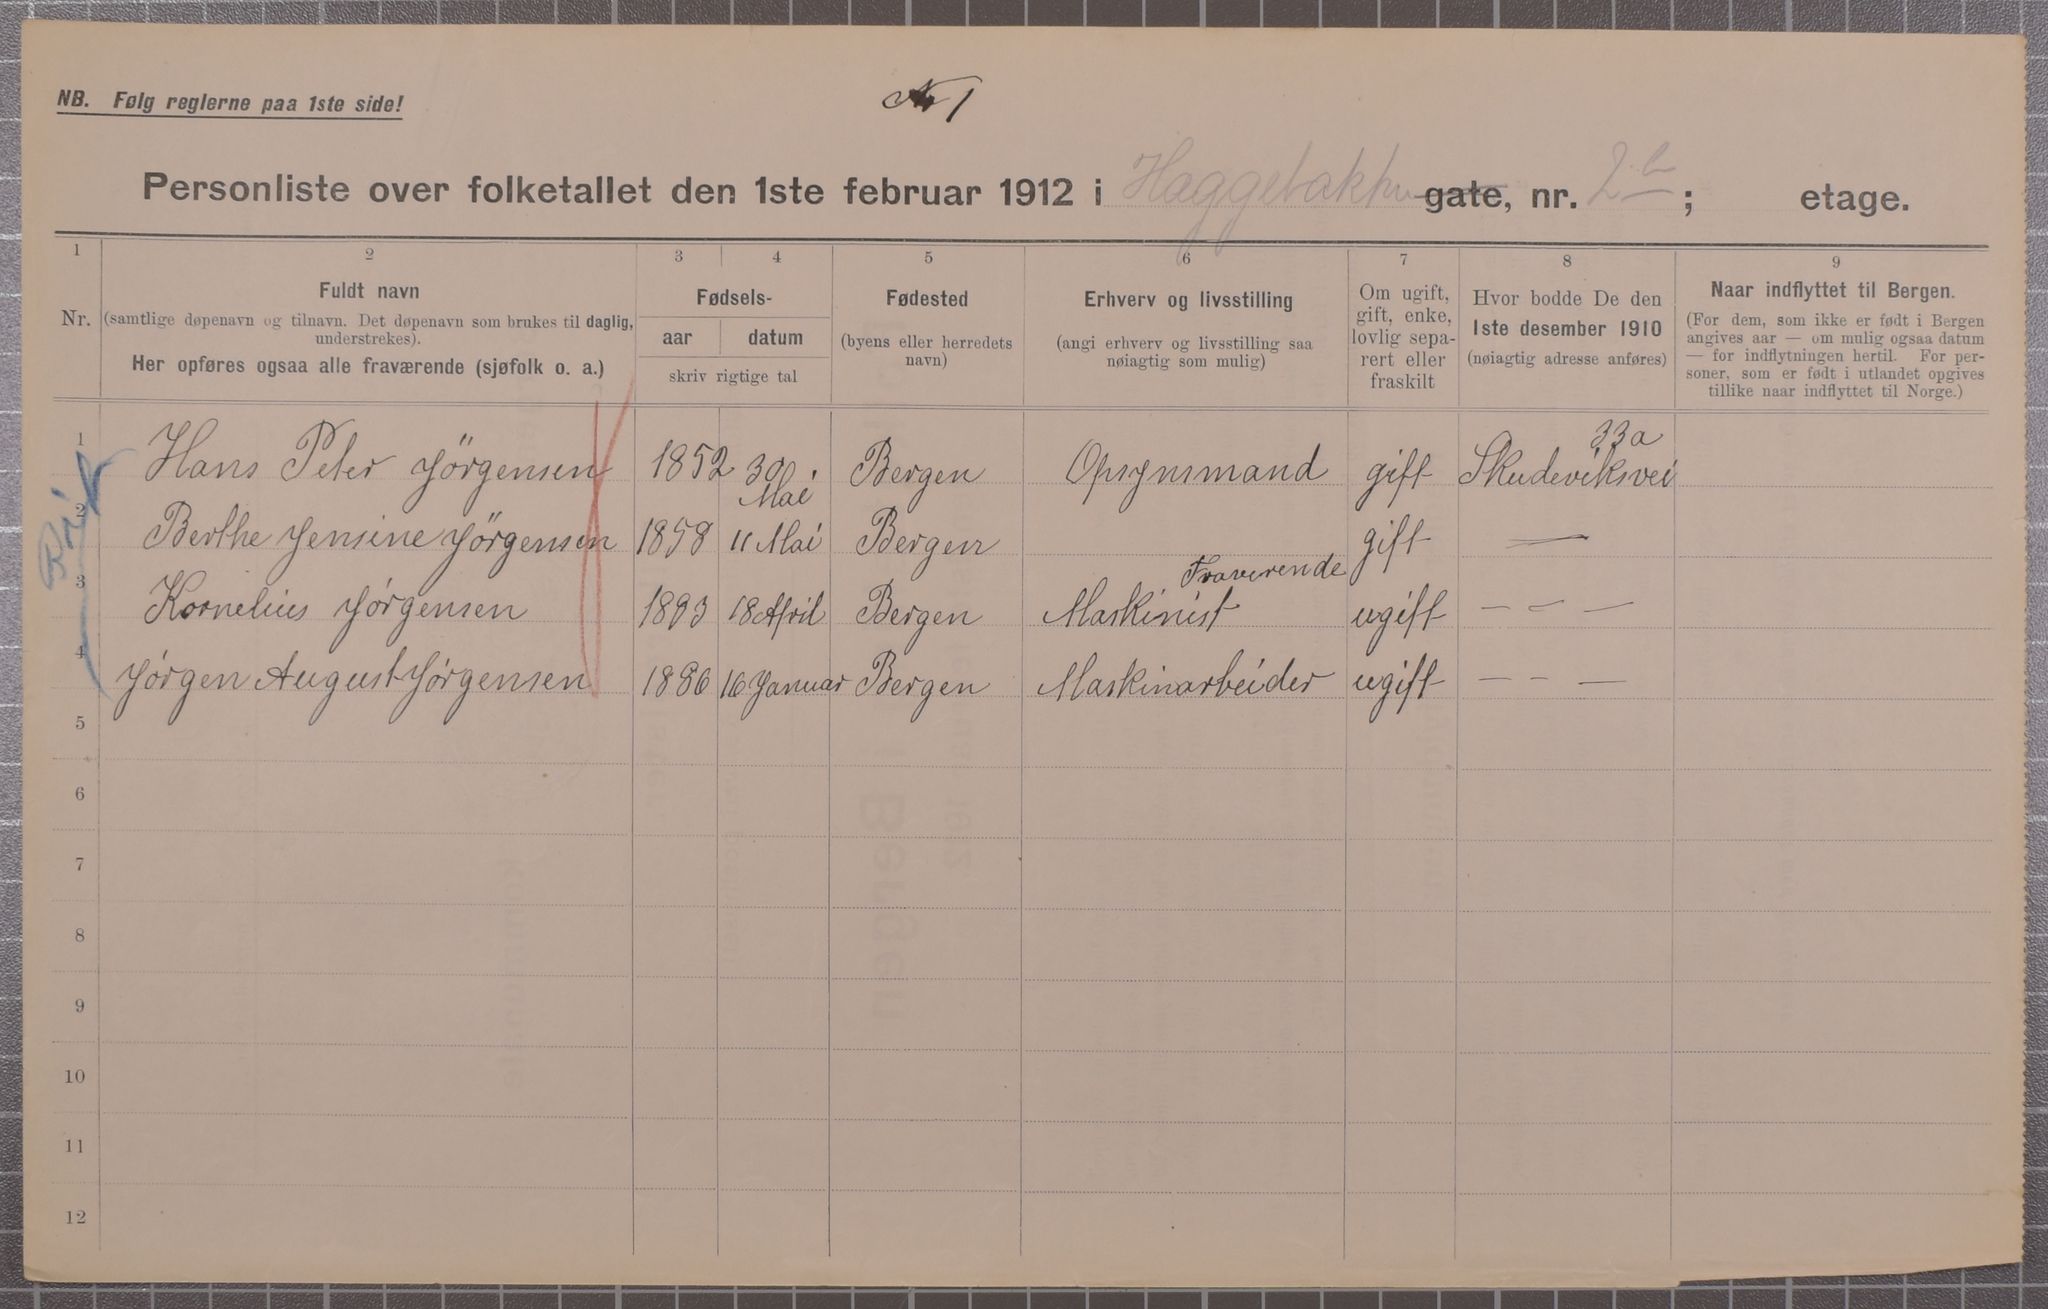 NB. Følg reglerne paa 1ste side!
No 1
Personliste over folketallet den 1ste februar 1912 i Haggebakken gate, nr. 2b ; etage.
1 2 3 4 5 6 7 8 9
Nr.
Fuldt navn
(samtlige døpenavn og tilnavn. Det døpenavn som brukes til daglig,
understrekes).
Her opføres ogsaa alle fraværende (sjøfolk o. a.)
Fødsels-
aar datum
skriv rigtige tal
Fødested
(byens eller herredets
navn)
Erhverv og livsstilling
(angi erhverv og livsstilling saa
nøiagtig som mulig)
Om ugift,
gift, enke,
lovlig sepa-
rert eller
fraskilt
Hvor bodde De den
1ste desember 1910
(nøiagtig adresse anføres)
Naar indflyttet til Bergen.
(For dem, som ikke er født i Bergen
angives aar — om mulig ogsaa datum
— for indflytningen hertil. For per-
soner, som er født i utlandet opgives
tillike naar indflyttet til Norge.)
33a
1 Hans Peter Jörgensen 1852 30 Mai Bergen Opsynsmand gift Skudeviksvei
2 Berthe Jensine Jörgensen 1858 11 Mai Bergen gift —
Fraverende
3 Kornelius Jørgensen 1893 18 April Bergen Maskinist ugift — — —
4 Jørgen August Jørgensen 1886 16 Januar Bergen Maskinarbeider ugift — — —
5
6
7
8
9
10
11
12